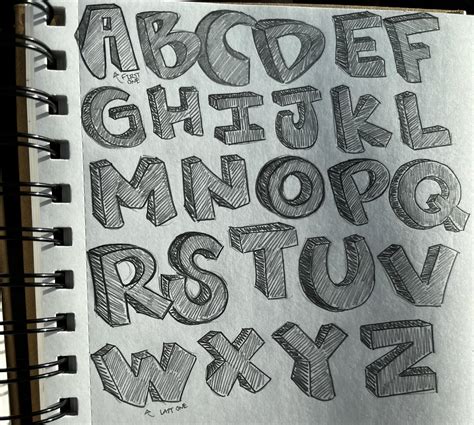 ABCDEF
FIRST
ONE
GHIJKL
MNOPQ
RSTUV
WXYZ
LAST ONE